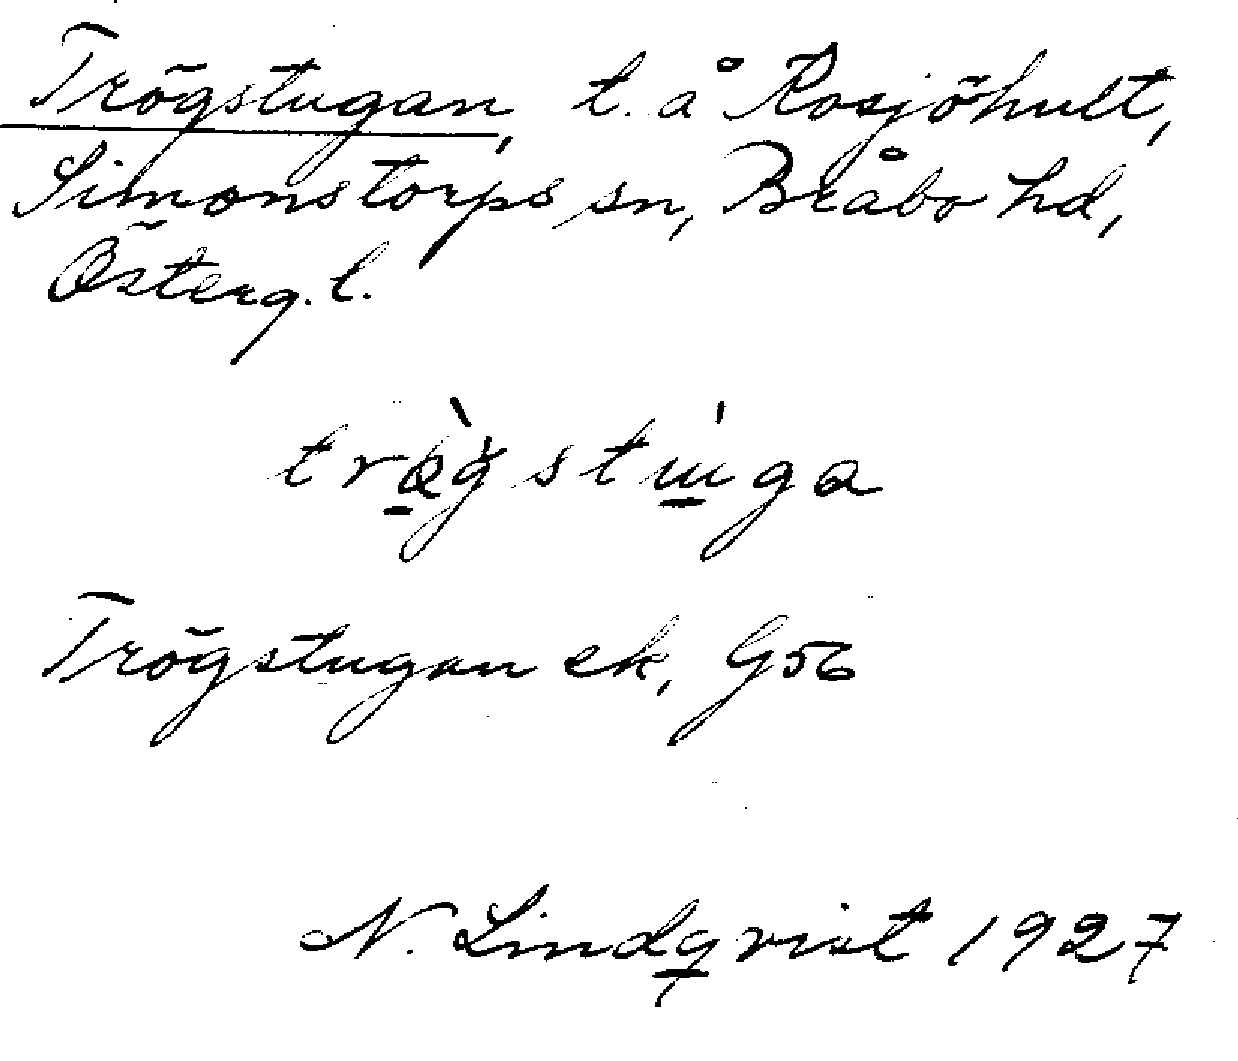 Trögstugan, t. å Rosjöhult,
Simonstorps sn, Bråbo hd,
Österg. l.
trø̀gstúga
Trögstugan ek, G56
N. Lindqvist 1927